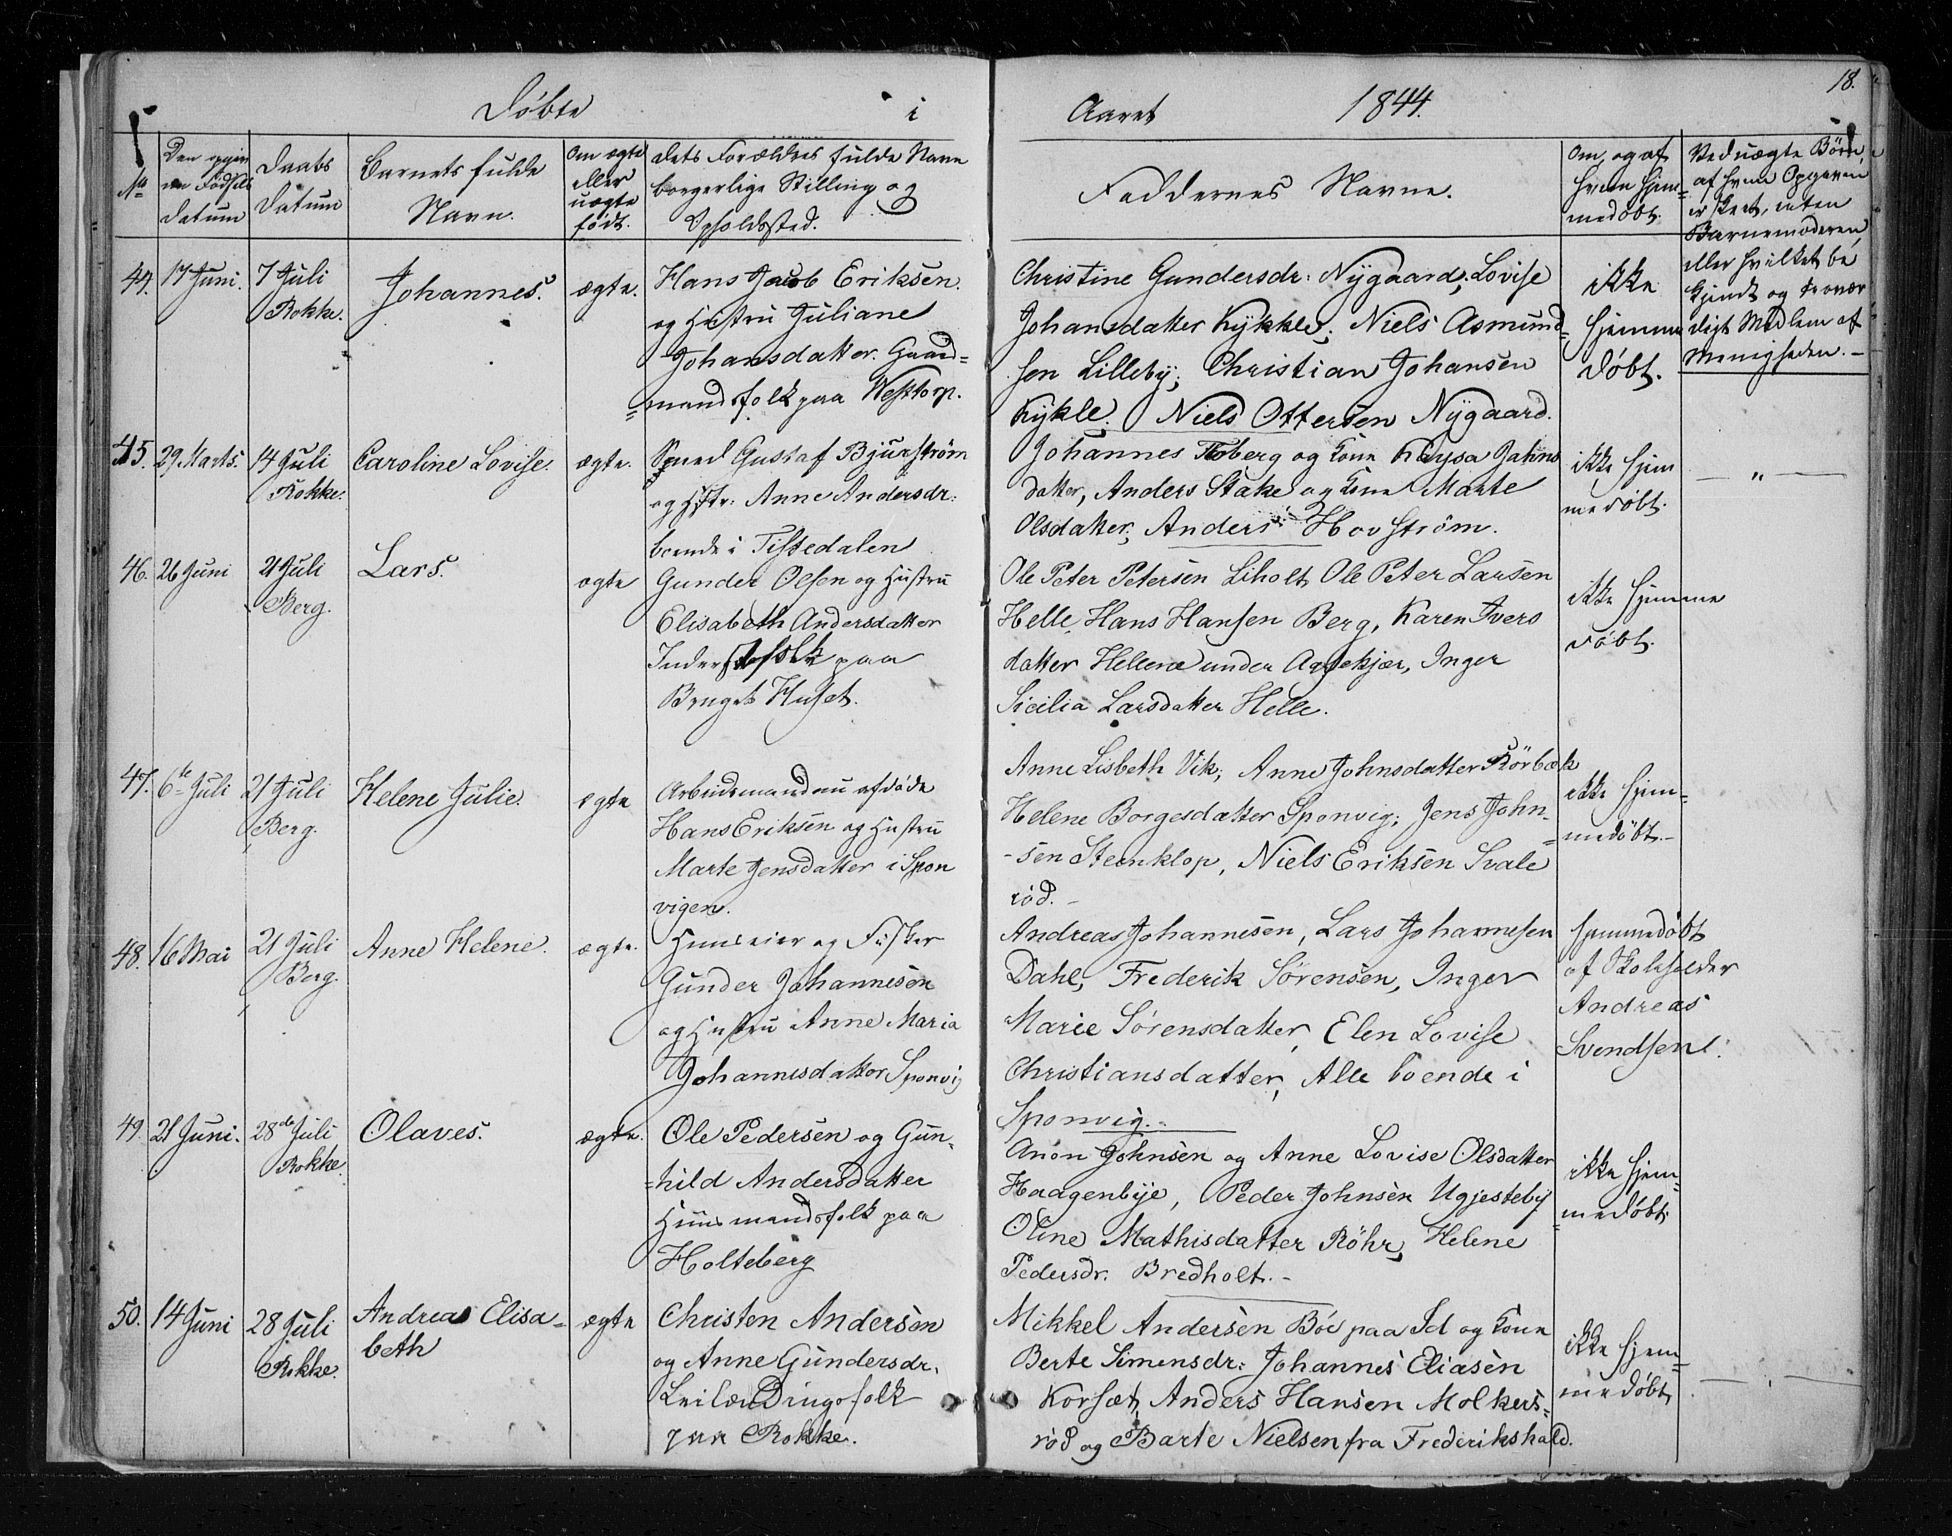 18.
Døbte i Aaret 1844.
No
Den opgiv
ne Fødsels
datum
Daabs
Datum
Barnets fulde
Navn.
Om ægte
eller
uægte
født.
dets Forældres fulde Navn
borgerlige Stilling og
Opholdssted.
Faddernes Navne.
Om, og af
hvem hjem=
medøbt.
Ved uægte Børn,
af hvem Opgaven
er skeet, enten
Barnemoderen,
eller hvilket be
kjendt og trovær
digt Medlem af
Menigheden.-
44. 17 Juni.
7 Juli
Rokke.
Johannes.
ægte.
Hans Jacob Eriksen
og Hustru Juliane
Johansdatter. Gaard=
=mandsfolk paa Westtorp.
Christine Gundersdr: Nygaard; Lovise
Johansdatter Kykkle; Niels Asmund=
sen Lilleby; Christian Johansen
Kykle. Niels Ottersen Nygaard.
ikke
hjemme
døbt.
45. 29 Marts.
14 Juli
Rokke.
Caroline Lovise.
ægte.
Smed Gustaf Bjurstrøm
og Hstr. Anne Andersdr.
boende i Tistedalen
Johannes Foberg og Kone Kaysa Jahns
datter, Anders Stake og Kone Marte
Olsdatter, Anders Hovstrøm.
ikke hjem
medøbt.
— " —
46. 26 Juni
21 Juli
Berg.
Lars.
ægte
Gunder Olsen og Hustru
Elisabeth Andersdatter
Inderstfolk paa
Bruget Huset.
Ole Peter Petersen Liholt, Ole Peter Larsen
Helle, Hans Hansen Berg, Karen Ivers
datter Hellene under Agnekjær, Inger
Sicilia Larsdatter Helle.
ikke hjemme
døbt.
47. 6te Juli
21 Juli
Berg.
Helene Julie.
ægte
Arbeidsmanden afdøde
Hans Eriksen og Hustru
Marte Jensdatter i Spon
vigen.
Anne Lisbeth Vik; Anne Johnsdatter Rørbæk
Helene Borgesdatter Sponvig; Jens John=
-sen Steenklop, Niels Eriksen Svale
rød.-
ikke hjem=
medøbt.-
48. 16 Mai
21 Juli
Berg.
Anne Helene.
ægte.
Huuseier og Fisker
Gunder Johannesen
og Hustru Anne Maria
Johannesdatter Sponvig
Andreas Johannesen, Lars Johannesen
Dahl, Frederik Sørensen, Inger
Marie Sørensdatter, Elen Lovise
Christiansdatter, Alle boende i
Sponvig.-
hjemmedøbt
af Skoleholder
Andreas
Svendsen.
49. 21 Juni.
28de Juli
Rokke.
Olaves.
ægte.
Ole Pedersen og Gun=
=hild Andersdatter
Huusmandsfolk paa
Holteberg
Anon Johnsen og Anne Lovise Olsdatter
Haagenbye, Peder Johnsen Ugjesteby
Oline Mathisdatter Röhr, Helene
Pedersdr. Bredholt.-
ikke hjem=
=medøbt
50. 14 Juni
28 Juli
Rokke.
Andrea Elisa=
beth
ægte
Christen Andersen
og Anne Gundersdr.
Leilændingsfolk
paa Rokke.
Mikkel Andersen Bøe paa Id og Kone
Berte Simensdr: Johannes Eliasen
Korsæt, Anders Hansen Molkers=
rød og Barte Nielsen fra Frederikshald.
ikke hjem=
medøbt